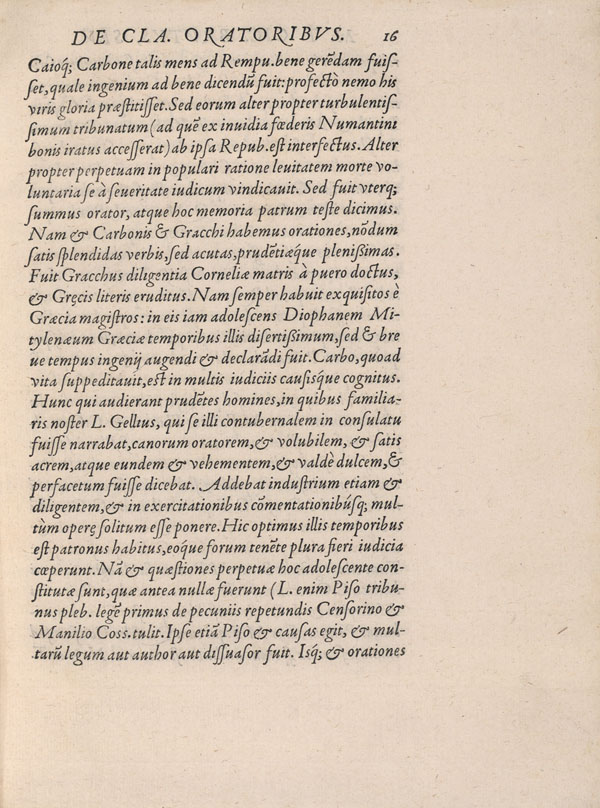 DE CLA. ORATORIBVS. 16
Caioq; Carbone talis mens ad Rempu. bene gerẽdam fuiſ-
ſet, quale ingenium ad bene dicendũ fuit: profectò nemo his
viris gloria præſtitiſſet. Sed eorum alter propter turbulentiſ-
ſimum tribunatum (ad quẽ ex inuidia fœderis Numantini
bonis iratus acceſſerat) ab ipſa Repub. eſt interfectus. Alter
propter perpetuam in populari ratione leuitatem morte vo-
luntaria ſe à ſeueritate iudicum vindicauit. Sed fuit vterq;
ſummus orator, atque hoc memoria patrum teſte dicimus.
Nam & Carbonis & Gracchi habemus orationes, nõdum
ſatis ſplendidas verbis, ſed acutas, prudẽtiæque pleniſsimas.
Fuit Gracchus diligentia Corneliæ matris à puero doctus,
& Gręcis literis eruditus. Nam ſemper habuit exquiſitos è
Græcia magiſtros: in eis iam adoleſcens Diophanem Mi-
tylenæum Græciæ temporibus illis diſertiſsimum, ſed & bre
ue tempus ingenij augendi & declarãdi fuit. Carbo, quoad
vita ſuppeditauit, eſt in multis iudiciis cauſiſque cognitus.
Hunc qui audierant prudẽtes homines, in quibus familia-
ris noſter L. Gellius, qui ſe illi contubernalem in conſulatu
fuiſſe narrabat, canorum oratorem, & volubilem, & ſatis
acrem, atque eundem & vehementem, & valdè dulcem, &
perfacetum fuiſſe dicebat. Addebat induſtrium etiam &
diligentem, & in exercitationibus cõmentationibúſq; mul-
tùm operę ſolitum eſſe ponere. Hic optimus illis temporibus
eſt patronus habitus, eoque forum tenẽte plura fieri iudicia
cœperunt. Nã & quæſtiones perpetuæ hoc adoleſcente con-
ſtitutæ ſunt, quæ antea nullæ fuerunt (L. enim Piſo tribu-
nus pleb. legẽ primus de pecuniis repetundis Cenſorino &
Manilio Coss. tulit. Ipſe etiã Piſo & cauſas egit, & mul-
tarũ legum aut author aut diſſuaſor fuit. Iſq; & orationes